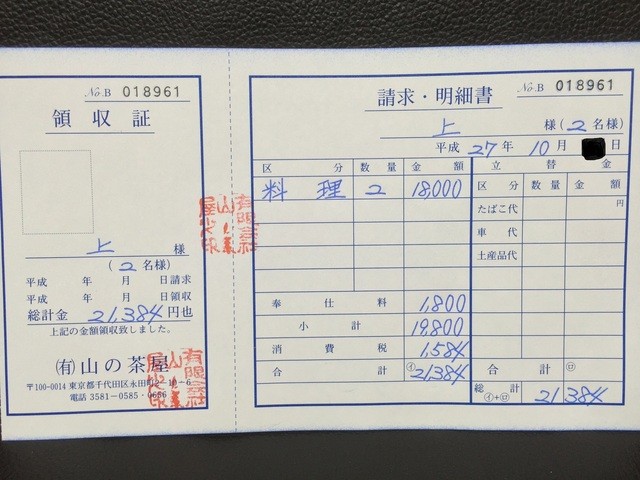 No.B 018961
領収証
上 様
(2名様)
平成 年 月 日請求
平成 年 月 日領収
総計金 21,384 円也
上記の金額領収致しました。
(有)山の茶屋
〒100-0014 東京都千代田区永田町2-10-6
電話 3581-0585・0656
有限会社
山の茶
屋之印
No.B 018961
請求・明細書
上 様(2名様)
平成 27年 10月 日
区分 数量 金額 立替金
料理 2 18,000 区分 数量 金額
たばこ代 円
車代
土産品代
奉仕料 1,800
小計 19,800
消費税 1,584
合計 ㋑21,384 合計 ㋺
総計 ㋑+㋺ 21,384